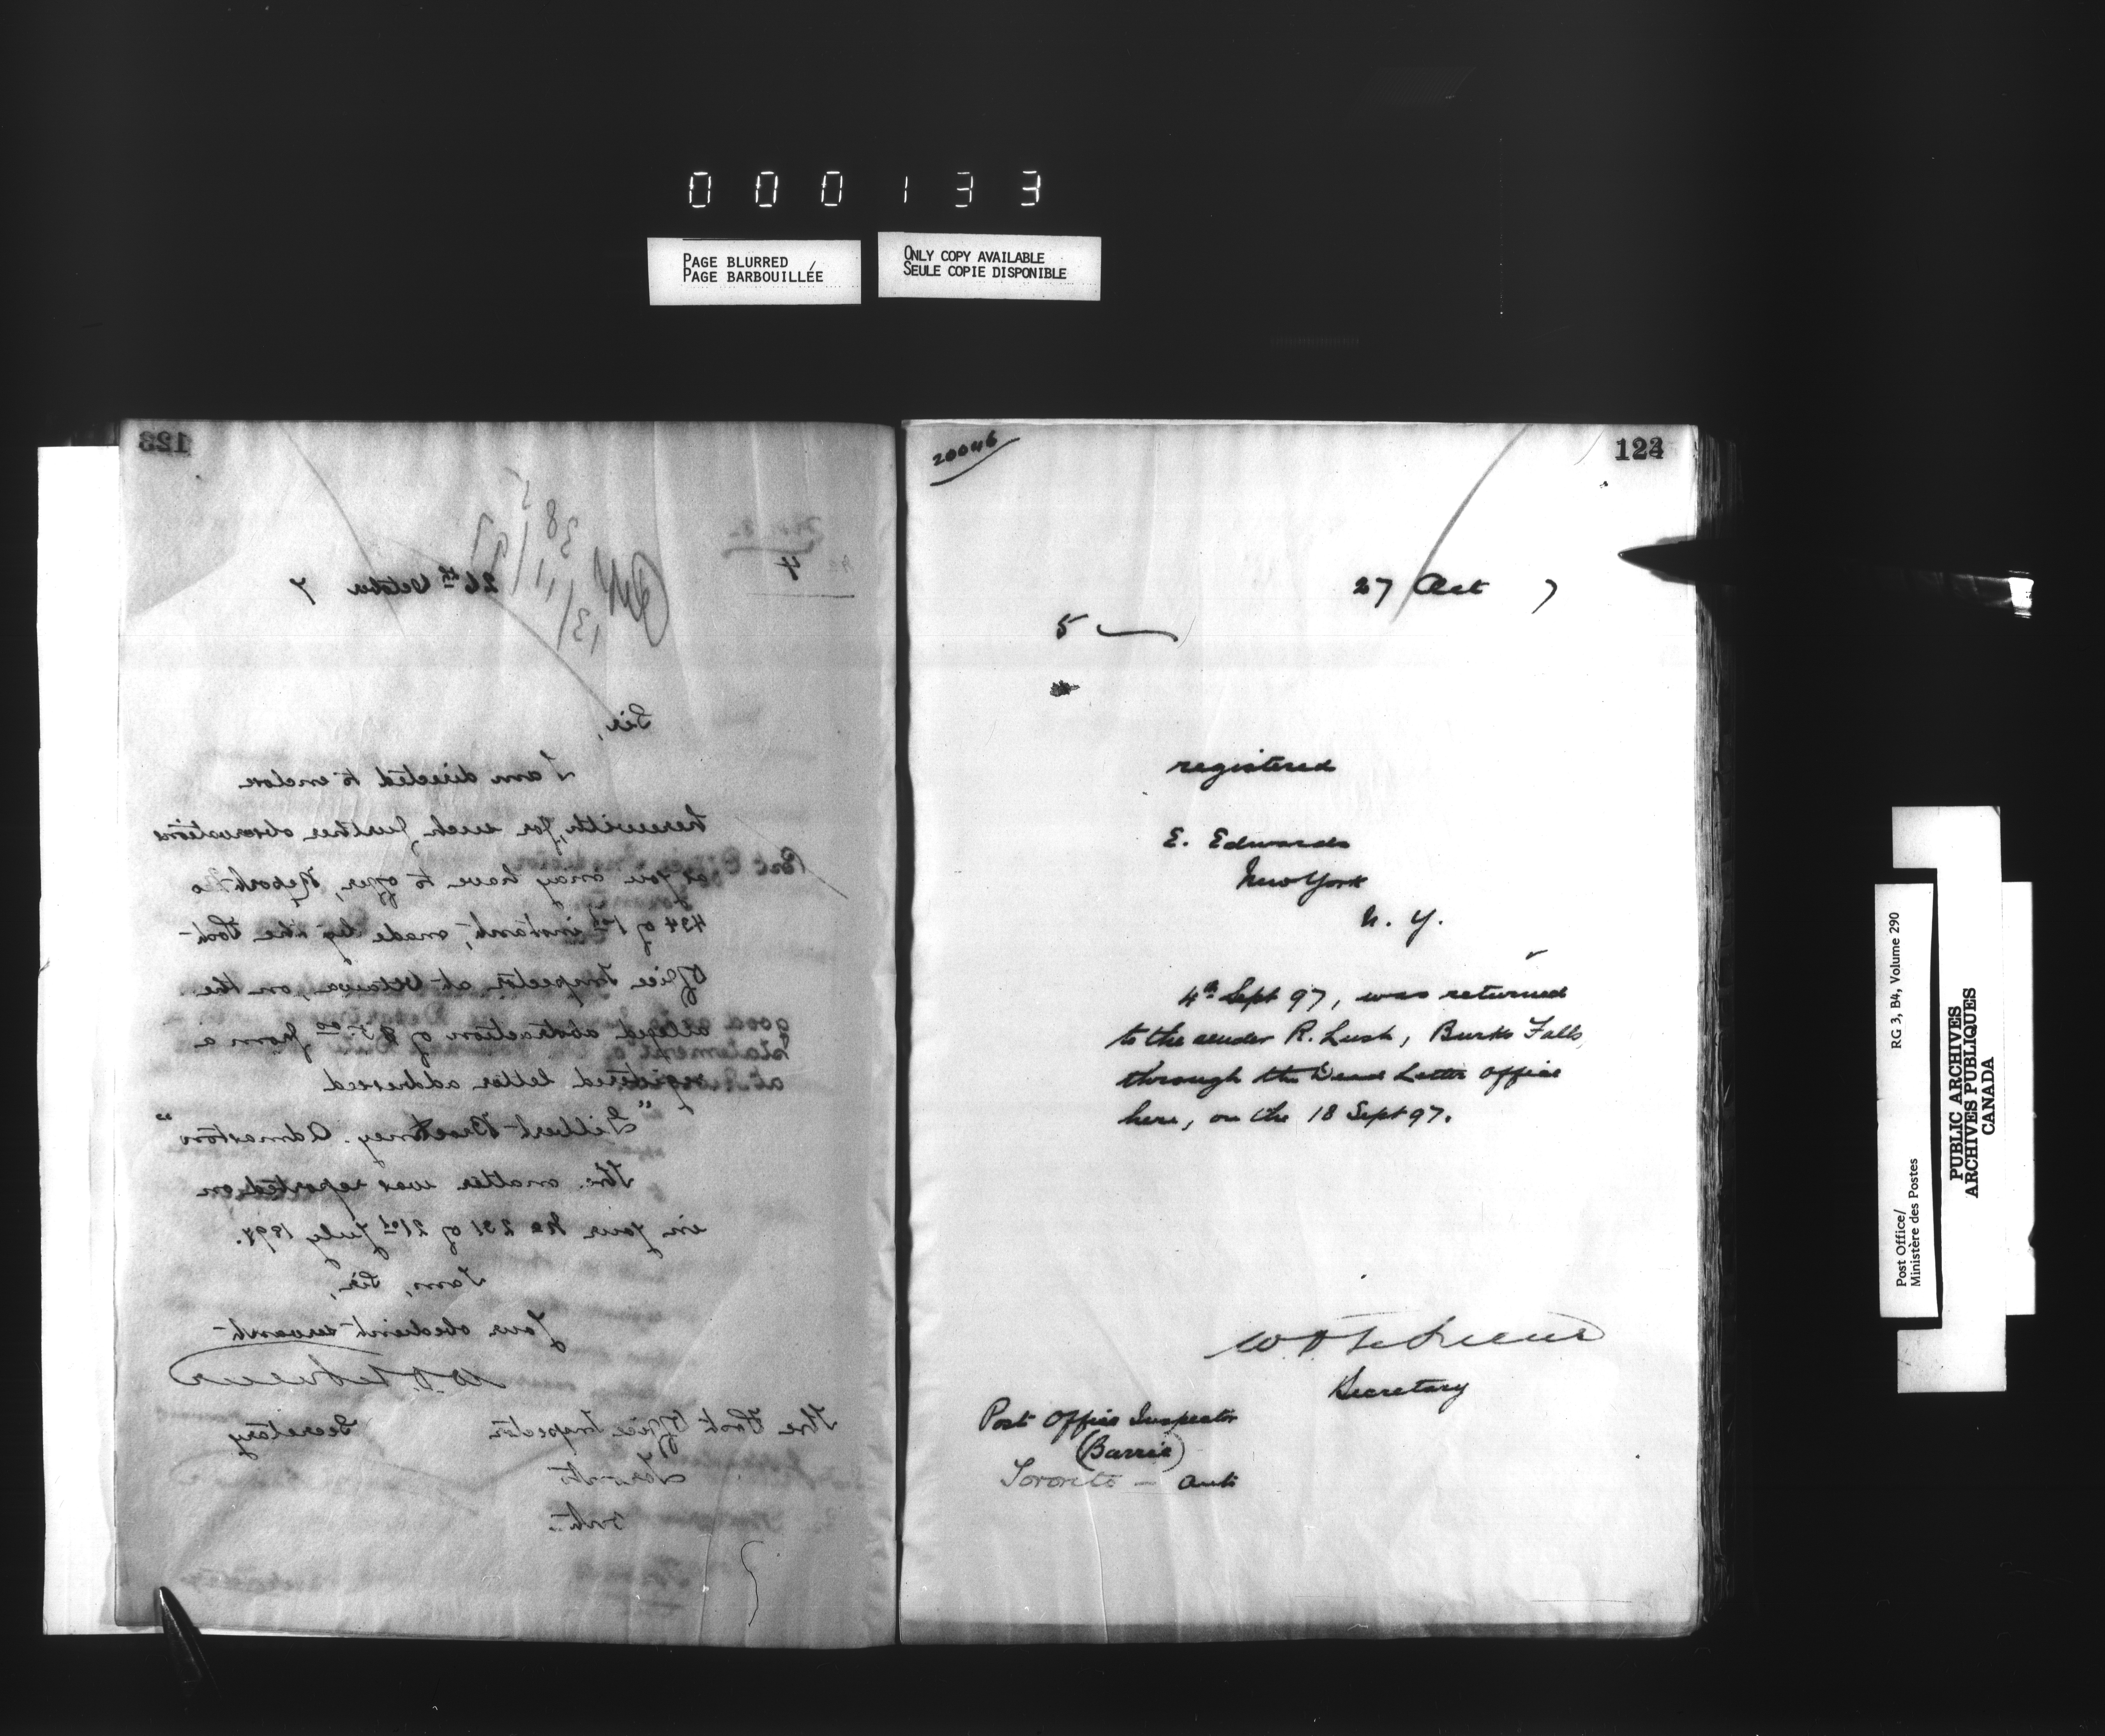 000133
PAGE BLURRED
PAGE BARBOUILLÉE
ONLY COPY AVAILABLE
SEULE COPIE DISPONIBLE
123
4
26th October 7
Sir,
I am directed to enclose
herewith, for such further observations
as you may have to offer, Report No
434 of 1st instant, made by the Post
Office Inspector at Ottawa, on the
alleged abstraction of $5.00 from a
registered letter addressed
"Gilbert Adamston"
The matter was reported on
in your No 231 of 21st July 1897.
I am, Sir,
Your obedient servant
Secretary
The Post Office Inspector
Toronto
Ont.
20046
27 Oct 7
5
registered
E. Edwards
New York
N. Y.
4th Sept 97, was returned
to the sender R. Lush, Burks Falls,
through the Dead Letter Office
here, on the 18 Sept 97.
Secretary
Post Office Inspector
(Barrie)
Toronto - Ont
RG 3, B4, Volume 290
Post Office/
Ministère des Postes
PUBLIC ARCHIVES
ARCHIVES PUBLIQUES
CANADA